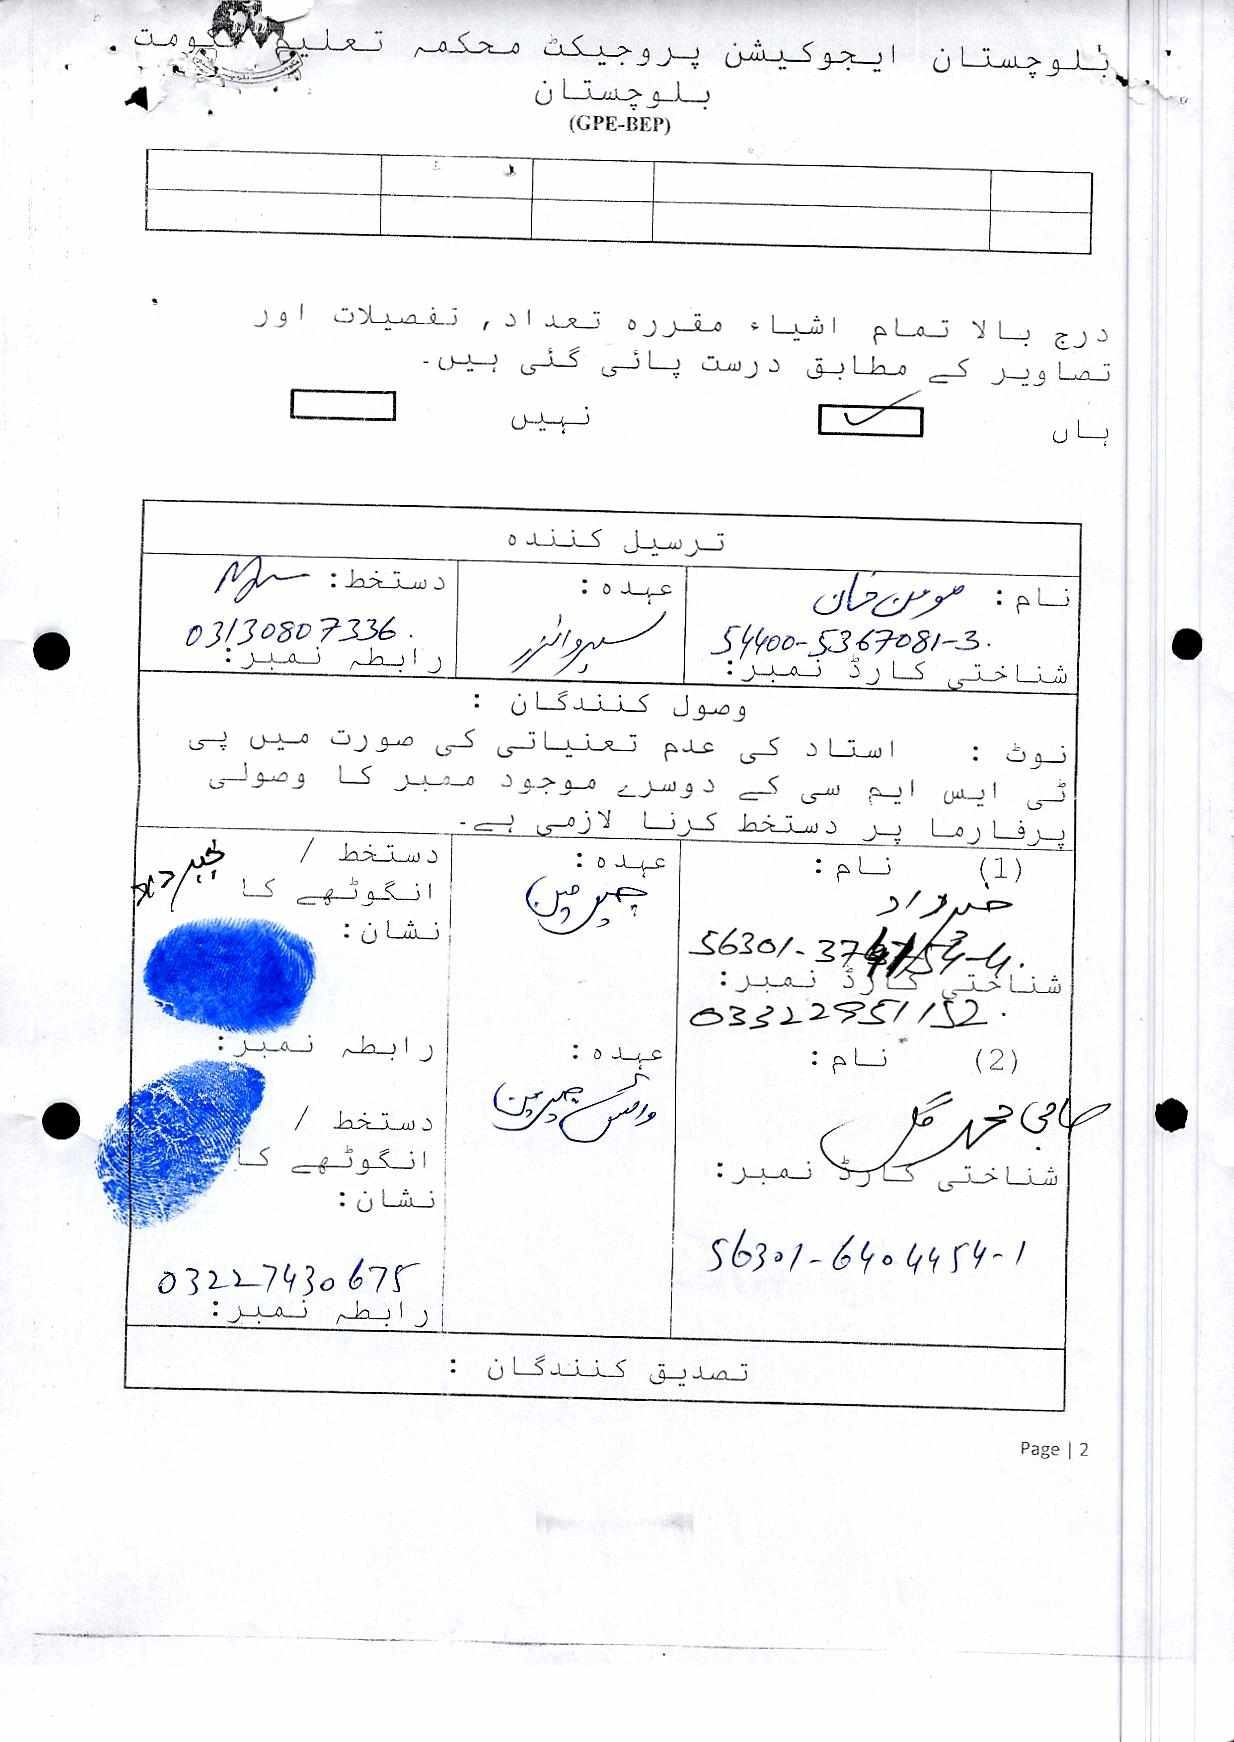 بلوچستان ایجوکیشن پروجیکٹ محکمہ تعلیم حکومت
بلوچستان
(GPE-BEP)
درج بالا تمام اشیاء مقررہ تعداد, تفصیلات اور
تصاویر کے مطابق درست پائی گئی ہیں۔
ہاں نہیں
ترسیل کنندہ
نام: مومن خان عہدہ: دستخط:
54400-5367081-3 سپروائزر 03130807336
شناختی کارڈ نمبر: رابطہ نمبر:
وصول کنندگان :
نوٹ : استاد کی عدم تعنیاتی کی صورت میں پی
ٹی ایس ایم سی کے دوسرے موجود ممبر کا وصولی
پرفارما پر دستخط کرنا لازمی ہے۔
(1) نام: عہدہ: دستخط /
چیرمین انگوٹھے کا
نشان:
شناختی کارڈ نمبر:
03322951152
رابطہ نمبر:
(2) نام: عہدہ:
حاجی محمد گل وائس چیرمین دستخط /
انگوٹھے کا
شناختی کارڈ نمبر: نشان:
56301-6404454-1 03227430675
رابطہ نمبر:
تصدیق کنندگان :
Page | 2